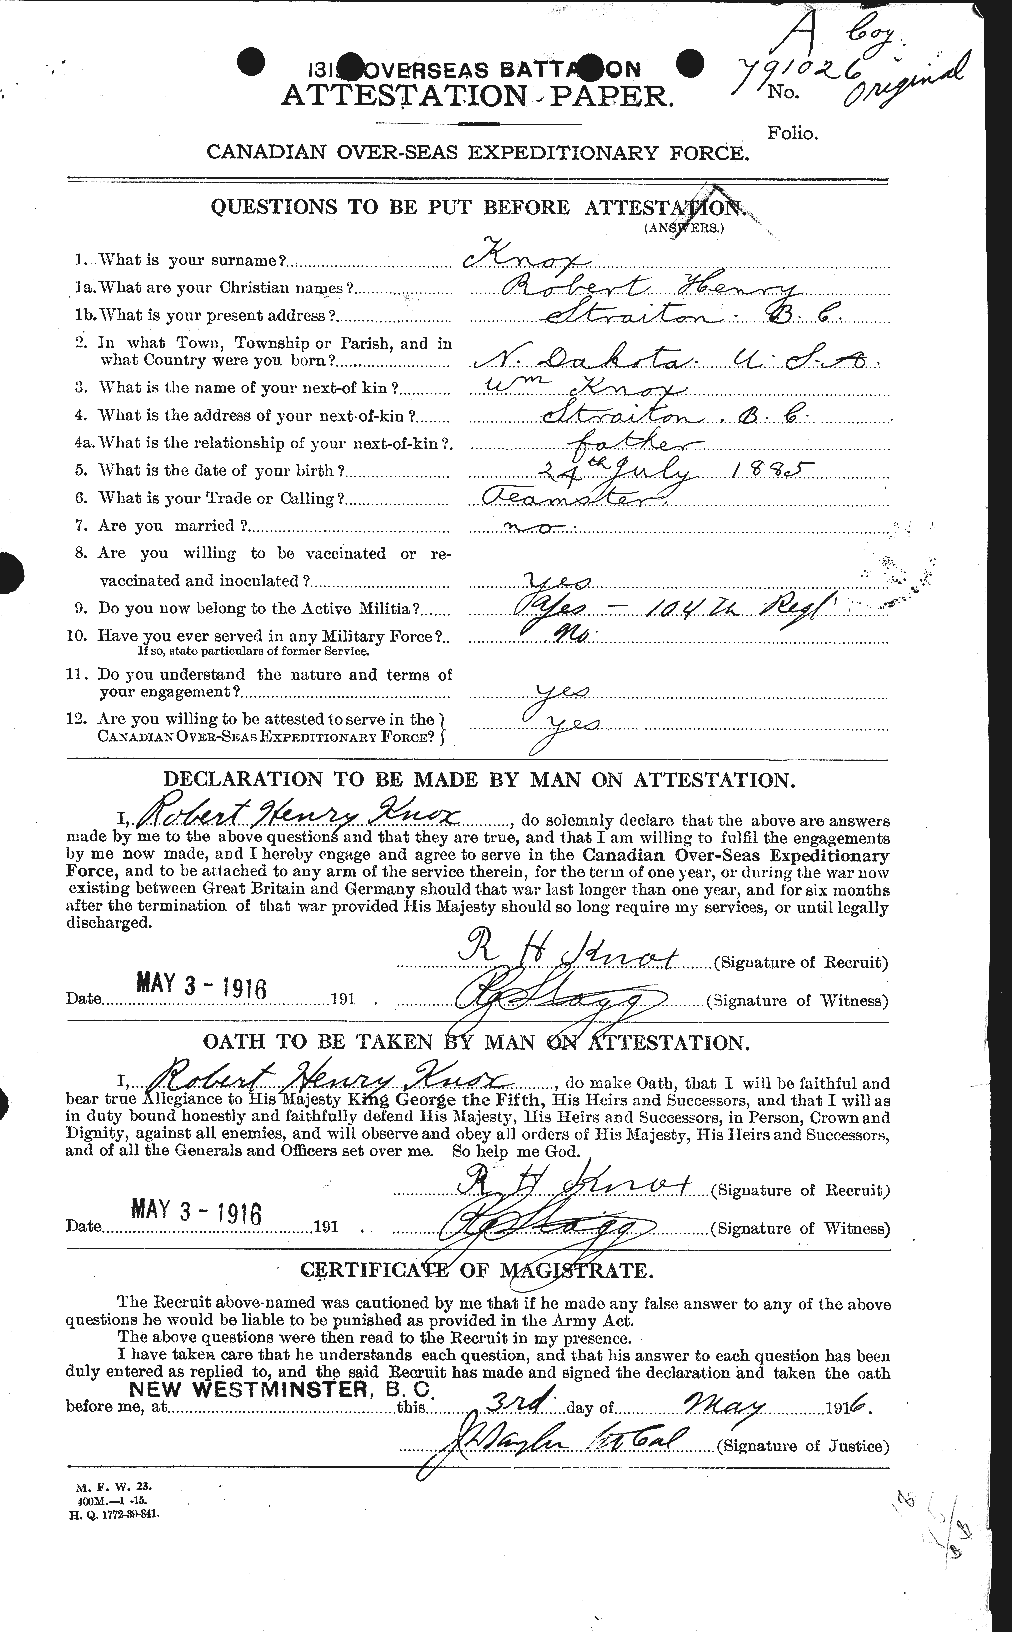 A Coy.
131 OVERSEAS BATTALION
791026
Original
ATTESTATION PAPER.
No.
Folio.
CANADIAN OVER-SEAS EXPEDITIONARY FORCE.
QUESTIONS TO BE PUT BEFORE ATTESTATION.
(ANSWERS.)
1. What is your surname? Knox
1a. What are your Christian names? Robert Henry
1b. What is your present address? Straiton. B. C.
2. In what Town, Township or Parish, and in
what Country were you born? N. Dakota. U. S. A.
3. What is the name of your next-of kin? Wm Knox
4. What is the address of your next-of-kin? Straiton. B. C.
4a. What is the relationship of your next-of-kin? father
5. What is the date of your birth? 24th July 1885
6. What is your Trade or Calling? Teamster
7. Are you married? no.
8. Are you willing to be vaccinated or re-
vaccinated and inoculated? yes
9. Do you now belong to the Active Militia? Yes - 104th Regt
10. Have you ever served in any Military Force? No.
If so, state particulars of former Service.
11. Do you understand the nature and terms of
your engagement? yes
12. Are you willing to be attested to serve in the }
CANADIAN OVER-SEAS EXPEDITIONARY FORCE? } yes
DECLARATION TO BE MADE BY MAN ON ATTESTATION.
I, Robert Henry Knox, do solemnly declare that the above are answers
made by me to the above questions and that they are true, and that I am willing to fulfil the engagements
by me now made, and I hereby engage and agree to serve in the Canadian Over-Seas Expeditionary
Force, and to be attached to any arm of the service therein, for the term of one year, or during the war now
existing between Great Britain and Germany should that war last longer than one year, and for six months
after the termination of that war provided His Majesty should so long require my services, or until legally
discharged.
R H Knox (Signature of Recruit)
Date MAY 3 - 1916 191 . Stagg (Signature of Witness)
OATH TO BE TAKEN BY MAN ON ATTESTATION.
I, Robert Henry Knox, do make Oath, that I will be faithful and
bear true Allegiance to His Majesty King George the Fifth, His Heirs and Successors, and that I will as
in duty bound honestly and faithfully defend His Majesty, His Heirs and Successors, in Person, Crown and
Dignity, against all enemies, and will observe and obey all orders of His Majesty, His Heirs and Successors,
and of all the Generals and Officers set over me. So help me God.
R H Knox (Signature of Recruit)
Date MAY 3 - 1916 191 . Stagg (Signature of Witness)
CERTIFICATE OF MAGISTRATE.
The Recruit above-named was cautioned by me that if he made any false answer to any of the above
questions he would be liable to be punished as provided in the Army Act.
The above questions were then read to the Recruit in my presence.
I have taken care that he understands each question, and that his answer to each question has been
duly entered as replied to, and the said Recruit has made and signed the declaration and taken the oath
before me, at NEW WESTMINSTER, B. C. this 3rd day of May 1916.
J Taylor Lt Col (Signature of Justice)
M. F. W. 23.
400M.-1 -15.
H. Q. 1772-39-841.